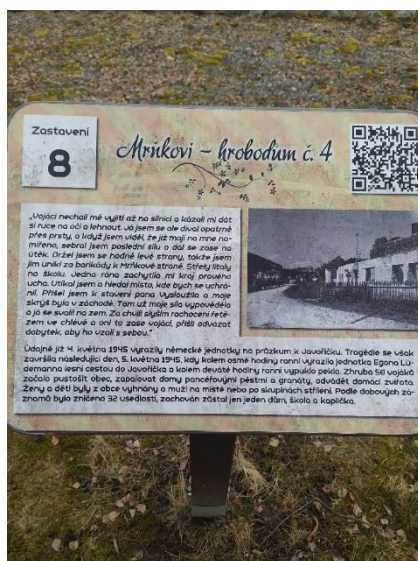 Zastavení
8
Mrňkovi – hrobodům č. 4
„Vojáci nechali mě vyjíti až na silnici a kázali mi dát
si ruce na oči a lehnout. Já jsem se ale díval opatrně
přes prsty, a když jsem viděl, že již mají na mne na-
mířeno, sebral jsem poslední sílu a dal se zase na
útěk. Držel jsem se hodně levé strany, takže jsem
jim unikl za barikády k Mrňkově straně. Střely lítaly
na školu. Jedna rána zachytila mi kraj pravého
ucha. Utíkal jsem a hledal místa, kde bych se uchrá-
nil. Přišel jsem k stavení pana Vysloužila a moje
skrýš byla v záchodě. Tam už moje síla vypověděla
a já se svalil na zem. Za chvíli slyším rachocení řetě-
zem ve chlévě a oni to zase vojáci, přišli odvázat
dobytek, aby ho vzali s sebou.“
Údajně již 4. května 1945 vyrazily německé jednotky na průzkum k Javoříčku. Tragédie se však
završila následující den, 5. května 1945, kdy kolem osmé hodiny ranní vyrazila jednotka Egona Lü-
demanna lesní cestou do Javoříčka a kolem deváté hodiny ranní vypuklo peklo. Zhruba 50 vojáků
začalo pustošit obec, zapalovat domy pancéřovými pěstmi a granáty, odvádět domácí zvířata.
Ženy a děti byly z obce vyhnány a muži na místě nebo po skupinách stříleni. Podle dobových zá-
znamů bylo zničeno 32 usedlostí, zachován zůstal jen jeden dům, škola a kaplička.